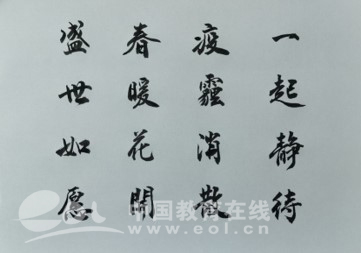 一起静待
疫霾消散
春暖花開
盛世如愿
中国教育在线
www.eol.cn